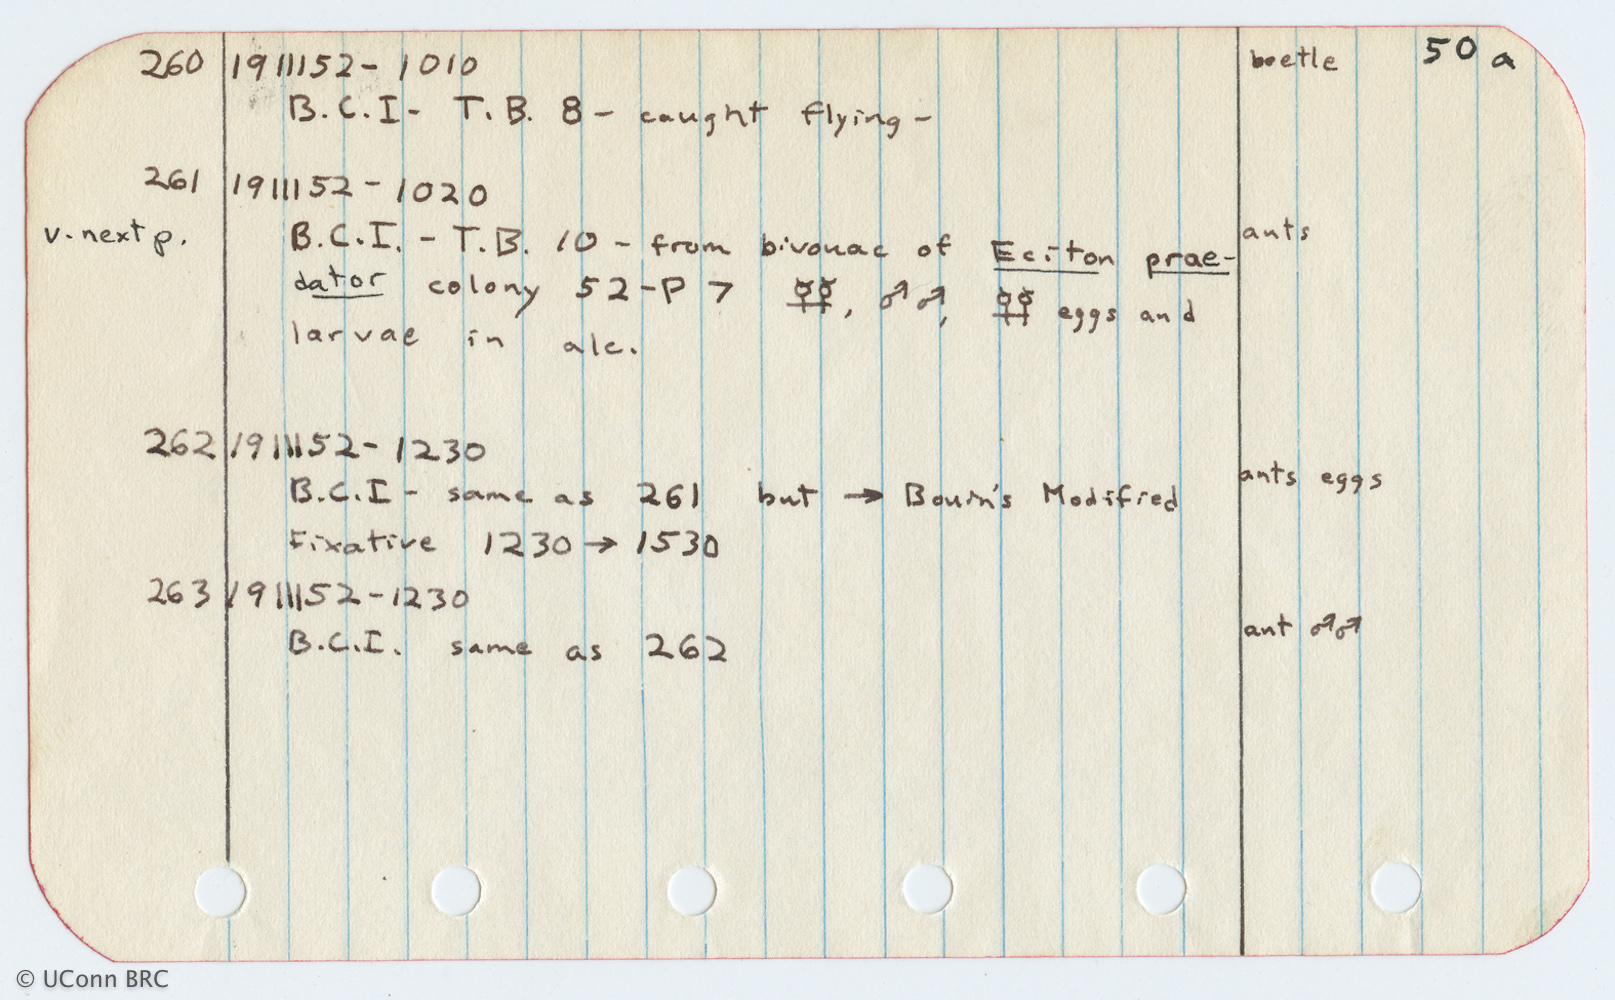 50 a
260 19III52 - 1010 beetle
B.C.I - T.B. 8 - caught flying -
261 19III52 - 1020
v. next p. B.C.I. - T.B. 10 - from bivouac of Eciton prae- ants
dator colony 52-P > ☿☿, ♂♂, ☿☿ eggs and
larvae in alc.
262 19III52 - 1230
B.C.I - same as 261 but → Bouin's Modified ants eggs
Fixative 1230 → 1530
263 19III52 - 1230
B.C.I. same as 262 ant ♂♂
© UConn BRC